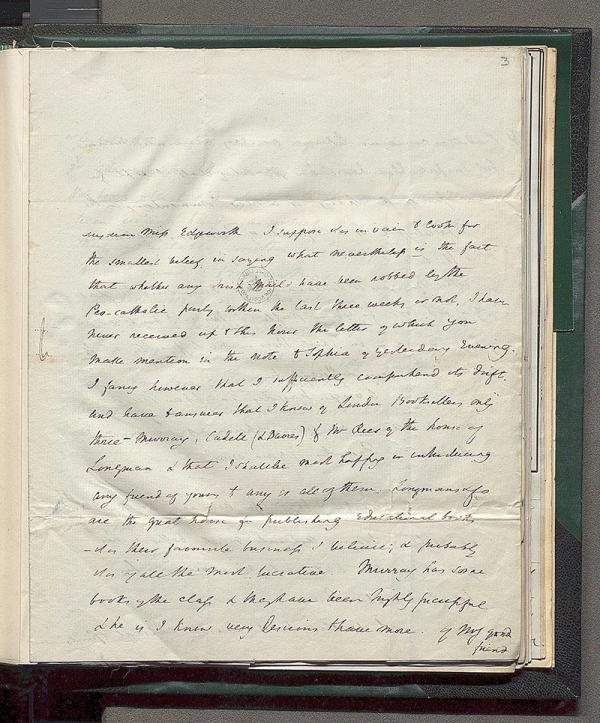 3
My dear Miss Edgeworth I suppose it is in vain to look for
the smallest belief in saying what nevertheless is the fact
that whether any Irish Mails have been robbed by the
Pro-catholic party within the last three weeks or not, I have
never received up to this hour the letter of which you
make mention in the note to Sophia of yesterday Evening.
I fancy however that I sufficiently comprehend its drift
and have to answer that I know of London Booksellers only
three - Murray, Cadell (& Davies) & Mr Rees of the house of
Longman & that I shall be most happy in introducing
any friend of yours to any or all of them. Longmans & Co
are the great house for publishing educational books
- it is their favourite business I believe; & probably
it is of all the most lucrative Murray has some
books of the class & they have been highly successful
& he is I know very desirous to have more. of my good
friend